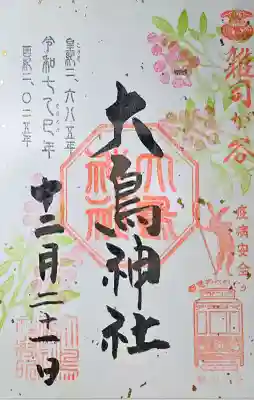 雑司が谷
大鳥神社
皇紀二、六八五年
令和七乙巳年
西暦二、〇二五年
十二月二十一日